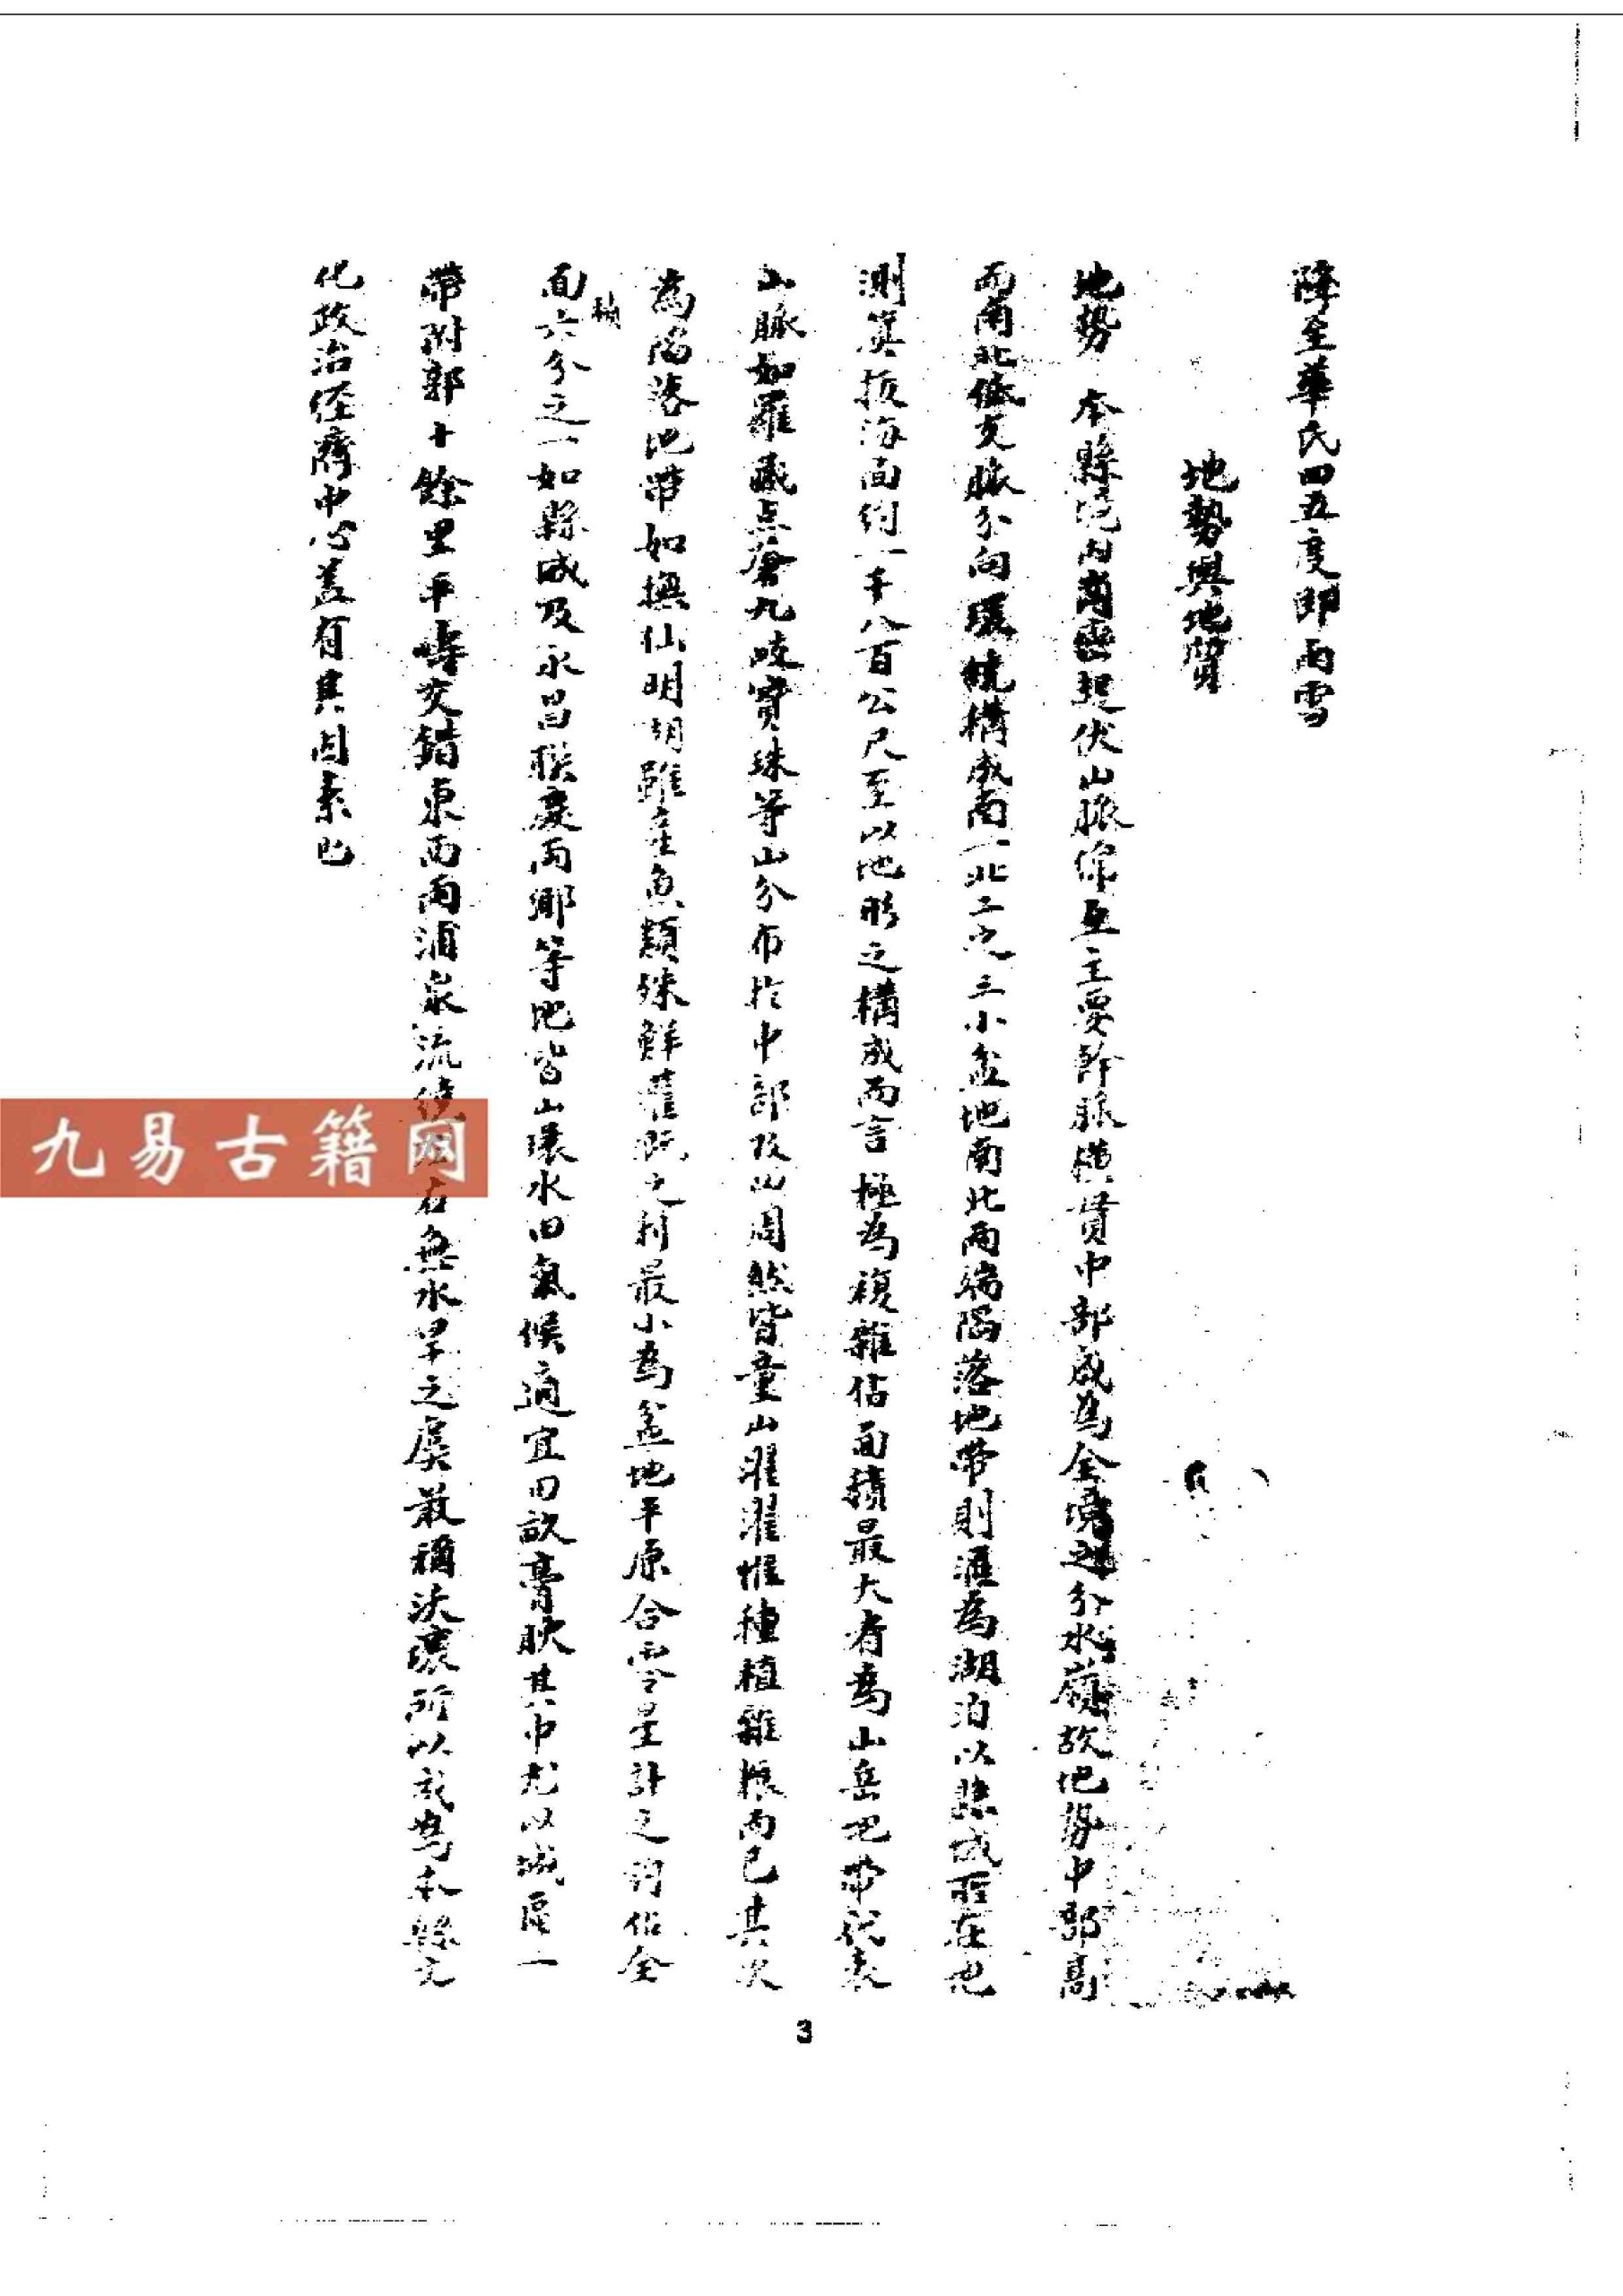 降至華氏四五度即雨雪
地勢與地質
地勢 本縣境内崗巒起伏山脈綿亙主要幹脈橫貫中部成為全境之分水嶺故地勢中部高
而南北低支脈分向環繞構成南一北二之三小盆地南北兩端陷落地帶則滙為湖泊以縣城所在地
測算拔海面約一千八百公尺至以地形之構成而言極為複雜佔面積最大者為山岳地帶代表
山脈如羅藏点蒼九岐寶珠等山分布於中部及四周然皆童山濯濯惟種植雜糧而已其次
為陷落地帶如撫仙明湖雖產魚類殊鮮灌溉之利最小為盆地平原合零星計之約佔全
面積六分之一如縣城及永昌聯慶兩鄉等地皆山環水回氣候適宜田畝膏腴其中尤以城區一
帶附郭十餘里平疇交錯東西兩浦泉流繞左右無水旱之虞最稱沃壤所以成為本縣文
化政治經濟中心蓋有其因素也
九易古籍网
3